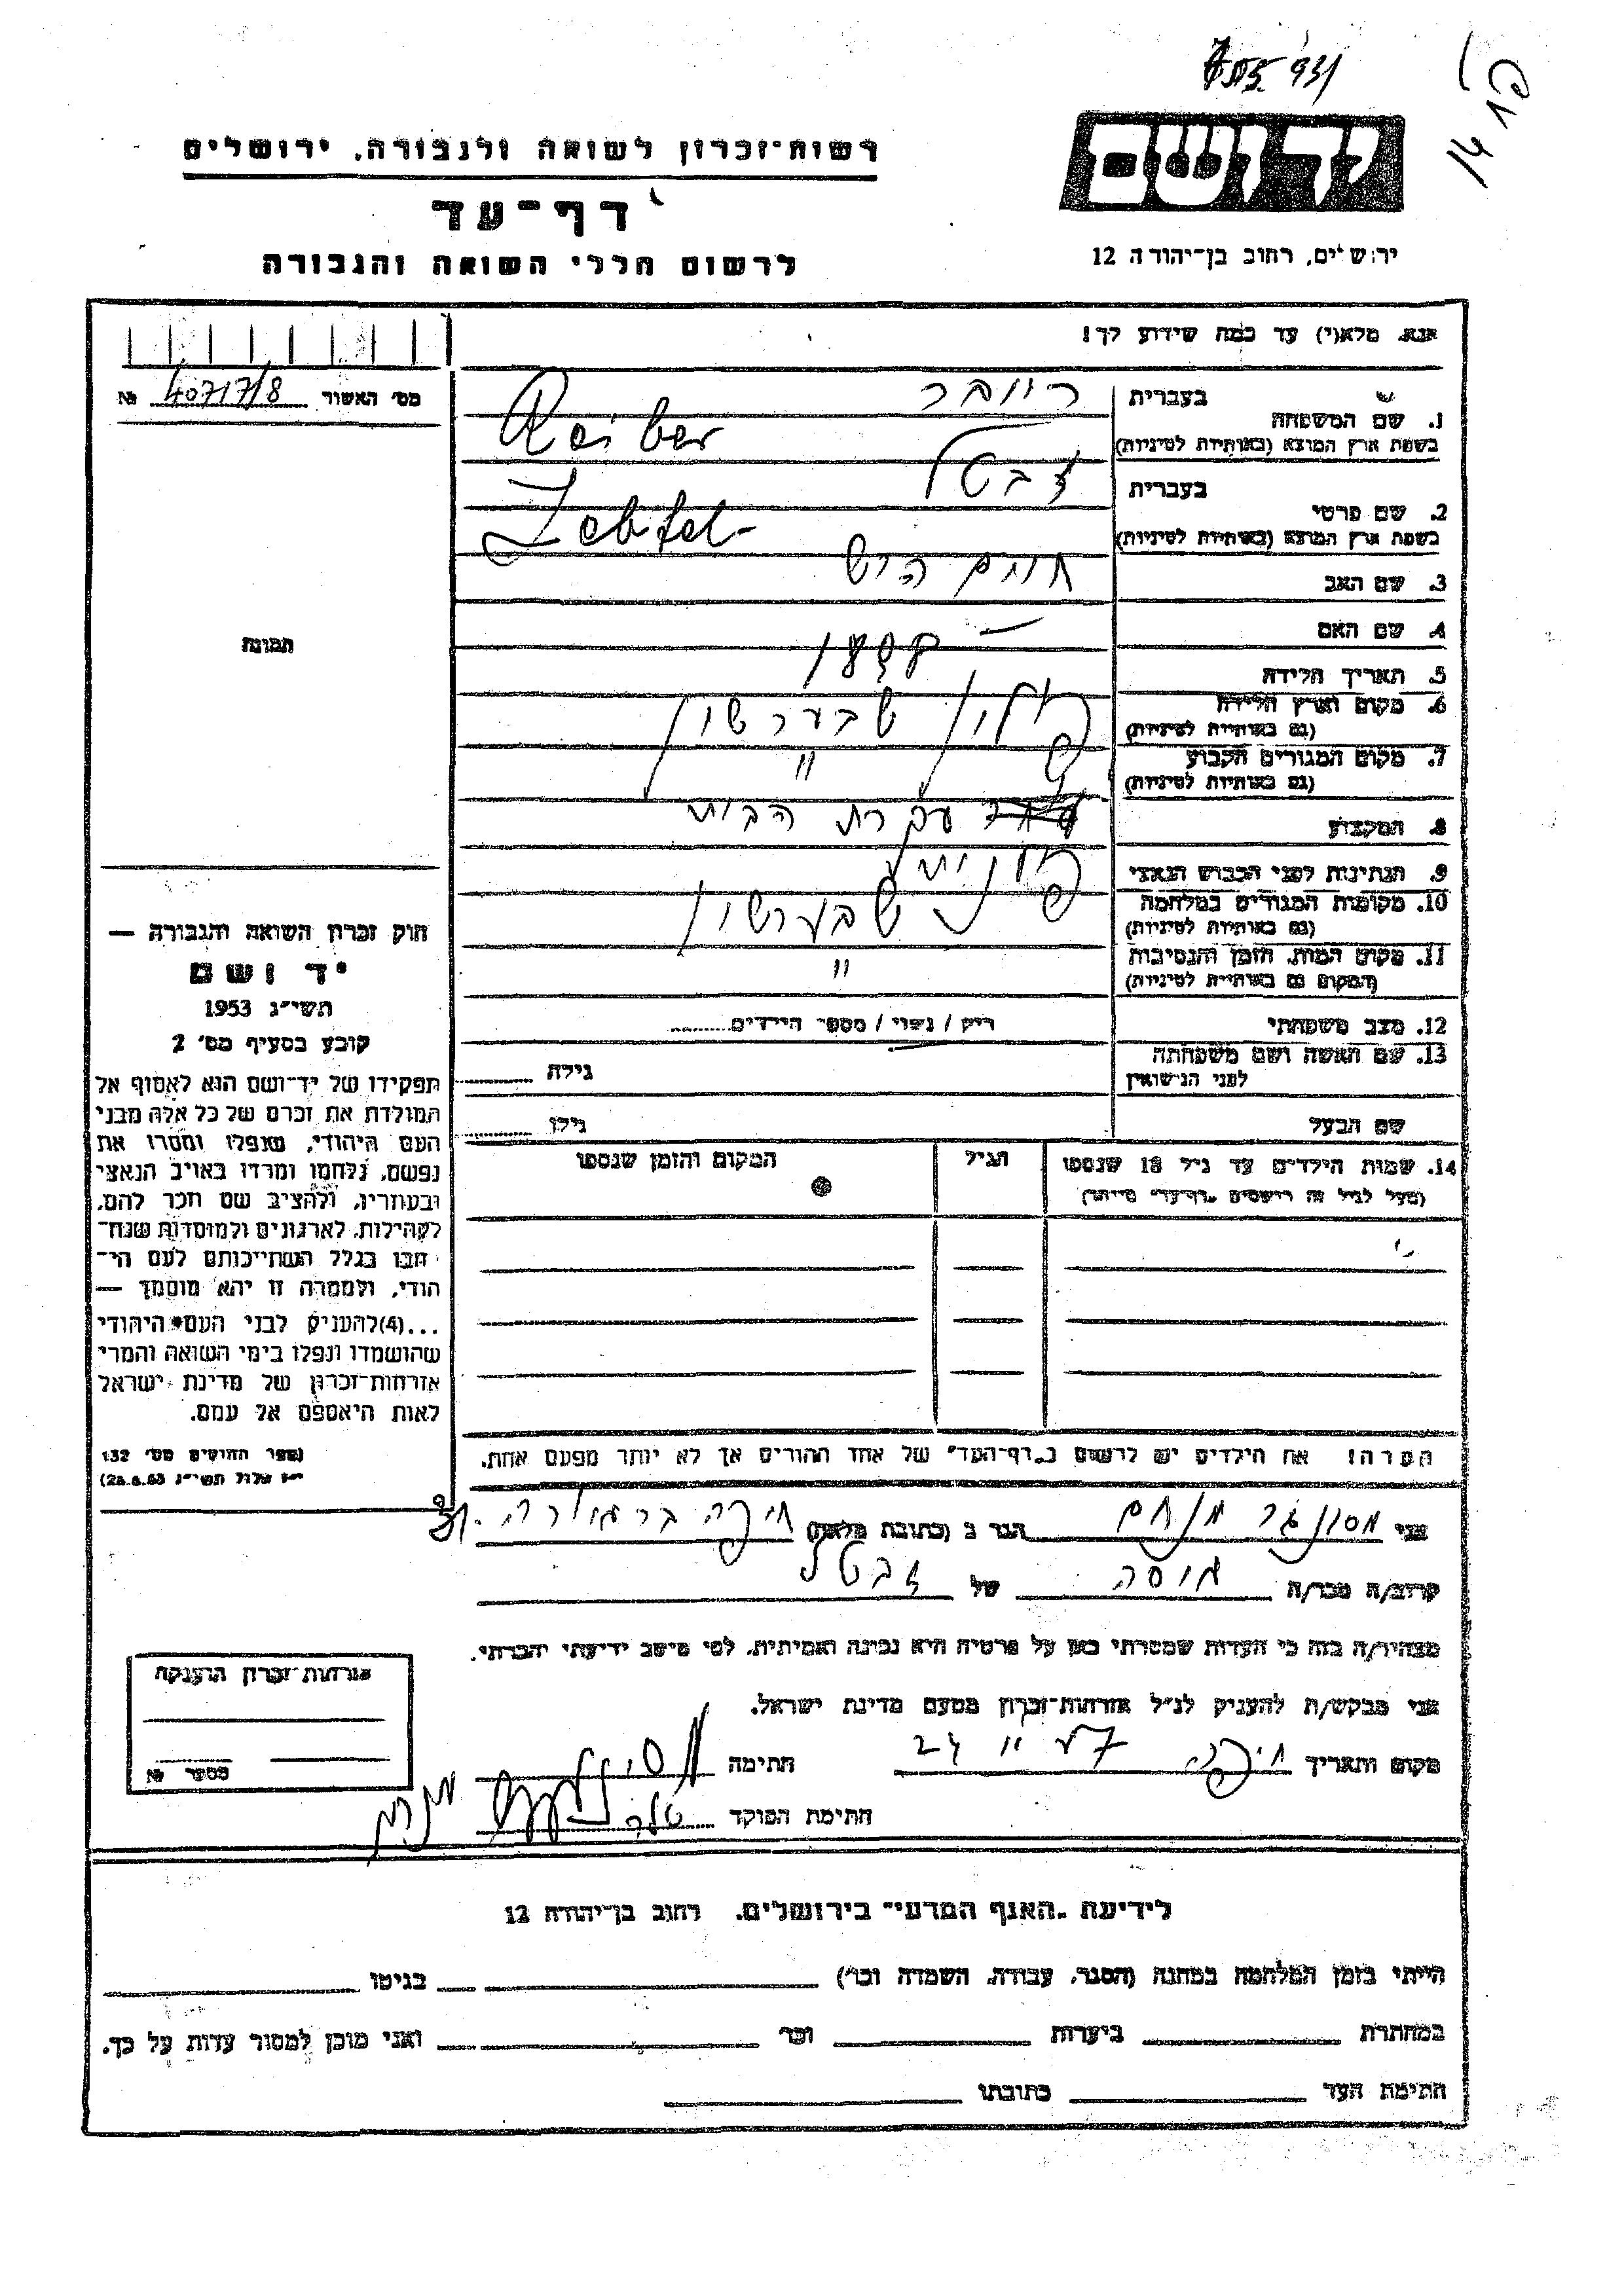 רשות־זכרון לשואה ולגבורה, ירושלים
דף־עד
לרשום חללי השואה והגבורה
יד ושם
ירושלים, רחוב בן־יהודה 12
אנא, מלא(י) עד כמה שידוע לך!
מס׳ האשור 40717/8 №
1. שם המשפחה
בעברית רייבר
בשפת ארץ המוצא (באותיות לטיניות) Reiber
2. שם פרטי
בעברית זבטל
בשפת ארץ המוצא (באותיות לטיניות) Zebtel
3. שם האב חיים הירש
4. שם האם —
5. תאריך הלידה
6. מקום וארץ הלידה
(גם באותיות לטיניות) פולין שבערשין
7. מקום המגורים הקבוע
(גם באותיות לטיניות) "
8. המקצוע עקרת הבית
9. הנתינות לפני הכבוש הנאצי פולנית
10. מקומות המגורים במלחמה
(גם באותיות לטיניות) שבערשין
11. מקום המות, הזמן והנסיבות
(המקום גם באותיות לטיניות) "
12. מצב משפחתי רווק / נשוי / מספר הילדים
13. שם האשה ושם משפחתה
לפני הנישואין גילה
שם הבעל גילו
14. שמות הילדים עד גיל 18 שנספו הגיל המקום והזמן שנספו
(מעל לגיל זה רושמים „דף־עד" מיוחד)
הערה: את הילדים יש לרשום ב„דף־העד" של אחד ההורים אך לא יותר מפעם אחת.
תמונה
חוק זכרון השואה והגבורה —
יד ושם
תשי״ג 1953
קובע בסעיף מס׳ 2
תפקידו של יד־ושם הוא לאסוף אל
המולדת את זכרם של כל אלה מבני
העם היהודי, שנפלו ומסרו את
נפשם, נלחמו ומרדו באויב הנאצי
ובעוזריו, ולהציב שם וזכר להם,
לקהילות, לארגונים ולמוסדות שנח־
רבו בגלל השתייכותם לעם הי־
הודי, ולמטרה זו יהא מוסמך —
...(4) להעניק לבני העם היהודי
שהושמדו ונפלו בימי השואה והמרי
אזרחות־זכרון של מדינת ישראל
לאות היאספם אל עמם.
(ספר החוקים מס׳ 132
י״ז אלול תשי״ג 28.8.53)
אני מנחם הגר ב (כתובת מלאה) חיפה
קרוב/ה מכר/ה גיסה של זבטל
מצהיר/ה בזה כי העדות שמסרתי כאן על פרטיה היא נכונה ואמיתית, לפי מיטב ידיעתי והכרתי.
אני מבקש/ת להעניק לנ״ל אזרחות־זכרון מטעם מדינת ישראל.
מקום ותאריך חיפה 24 11 57 חתימה
חתימת הפוקד
אזרחות־זכרון הוענקה
מספר №
לידיעת „האגף המדעי" בירושלים, רחוב בן־יהודה 12
הייתי בזמן המלחמה במחנה (הסגר, עבודה, השמדה וכו׳) בגיטו
במחתרת ביערות וכו׳ ואני מוכן למסור עדות על כך.
חתימת העד כתובתו